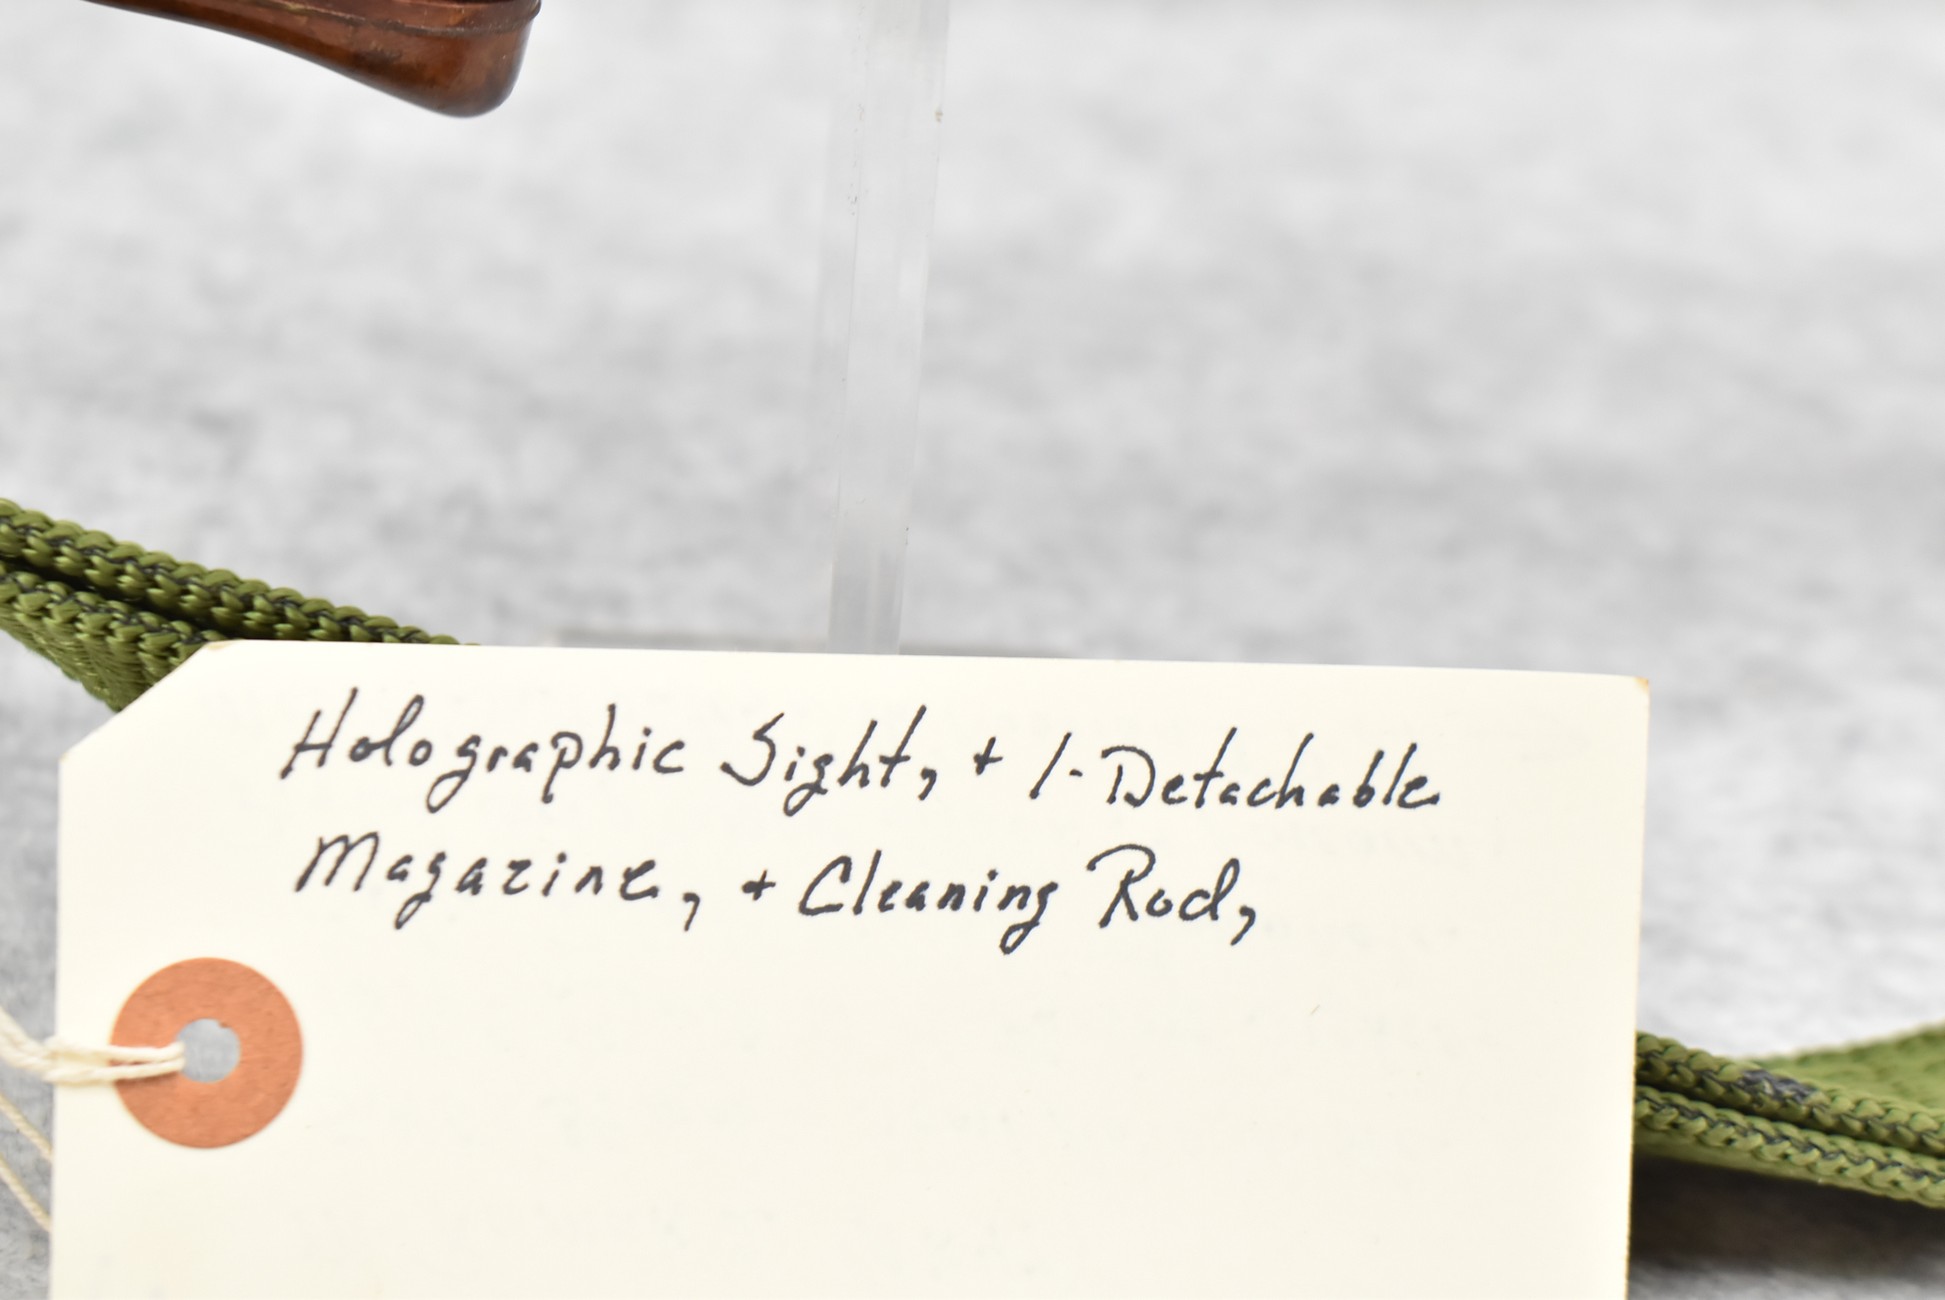 Holographic Sight, + 1-Detachable
Magazine, + Cleaning Rod,